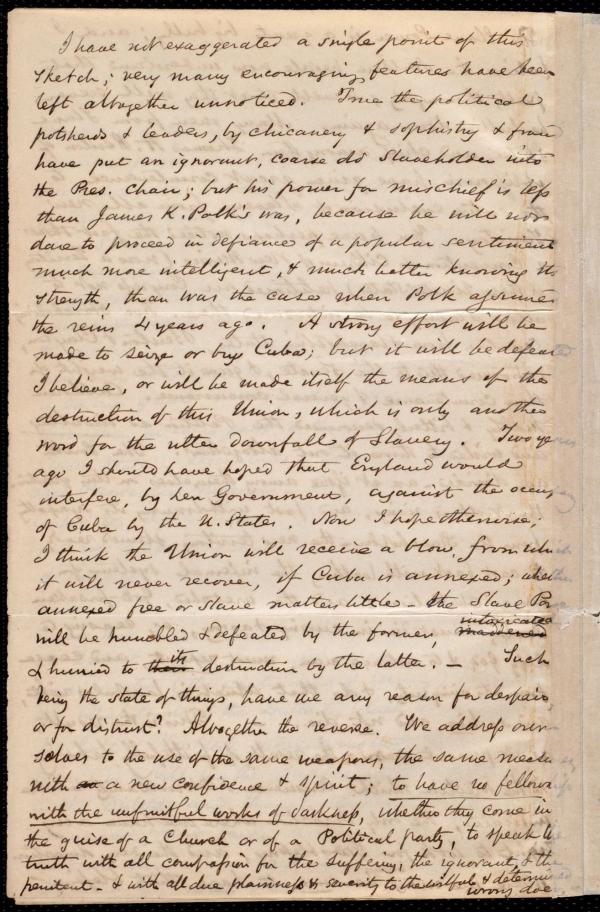 I have not exaggerated a single point of this
sketch; very many encouraging features have been
left altogether unnoticed. True the political
potsherds & leaders, by chicanery & sophistry & frau
have put an ignorant, coarse old Slaveholder into
the Pres. chair; but his power for mischief is less
than James K. Polk's was, because he will not
dare to proceed in defiance of a popular sentiment
much more intelligent, & much better knowing its
strength, than was the case when Polk assumed
the reins 4 years ago. A strong effort will be
made to seize or buy Cuba; but it will be defeated
I believe, or will be made itself the means of the
destruction of this Union, which is only another
word for the utter downfall of Slavery. Two years
ago I should have hoped that England would
interfere, by her Government, against the occup
of Cuba by the U. States. Now I hope otherwise;
I think the Union will receive a blow, from which
it will never recover, if Cuba is annexed; whether
annexed free or slave matters little - the Slave Pow
will be humbled & defeated by the former, intoxicated maddened
& hurried to their its destruction by the latter. — Such
being the state of things, have we any reason for despair,
or for distrust? Altogether the reverse. We address our
selves to the use of the same weapons, the same means,
with a new confidence & spirit; to have no fellow
with the unfruitful works of darkness, whether they come in
the guise of a Church or of a Political party, to speak th
truth with all compassion for the suffering, the ignorant, & the
penitent - & with all due plainness & severity to the wilful & determined
wrong doer